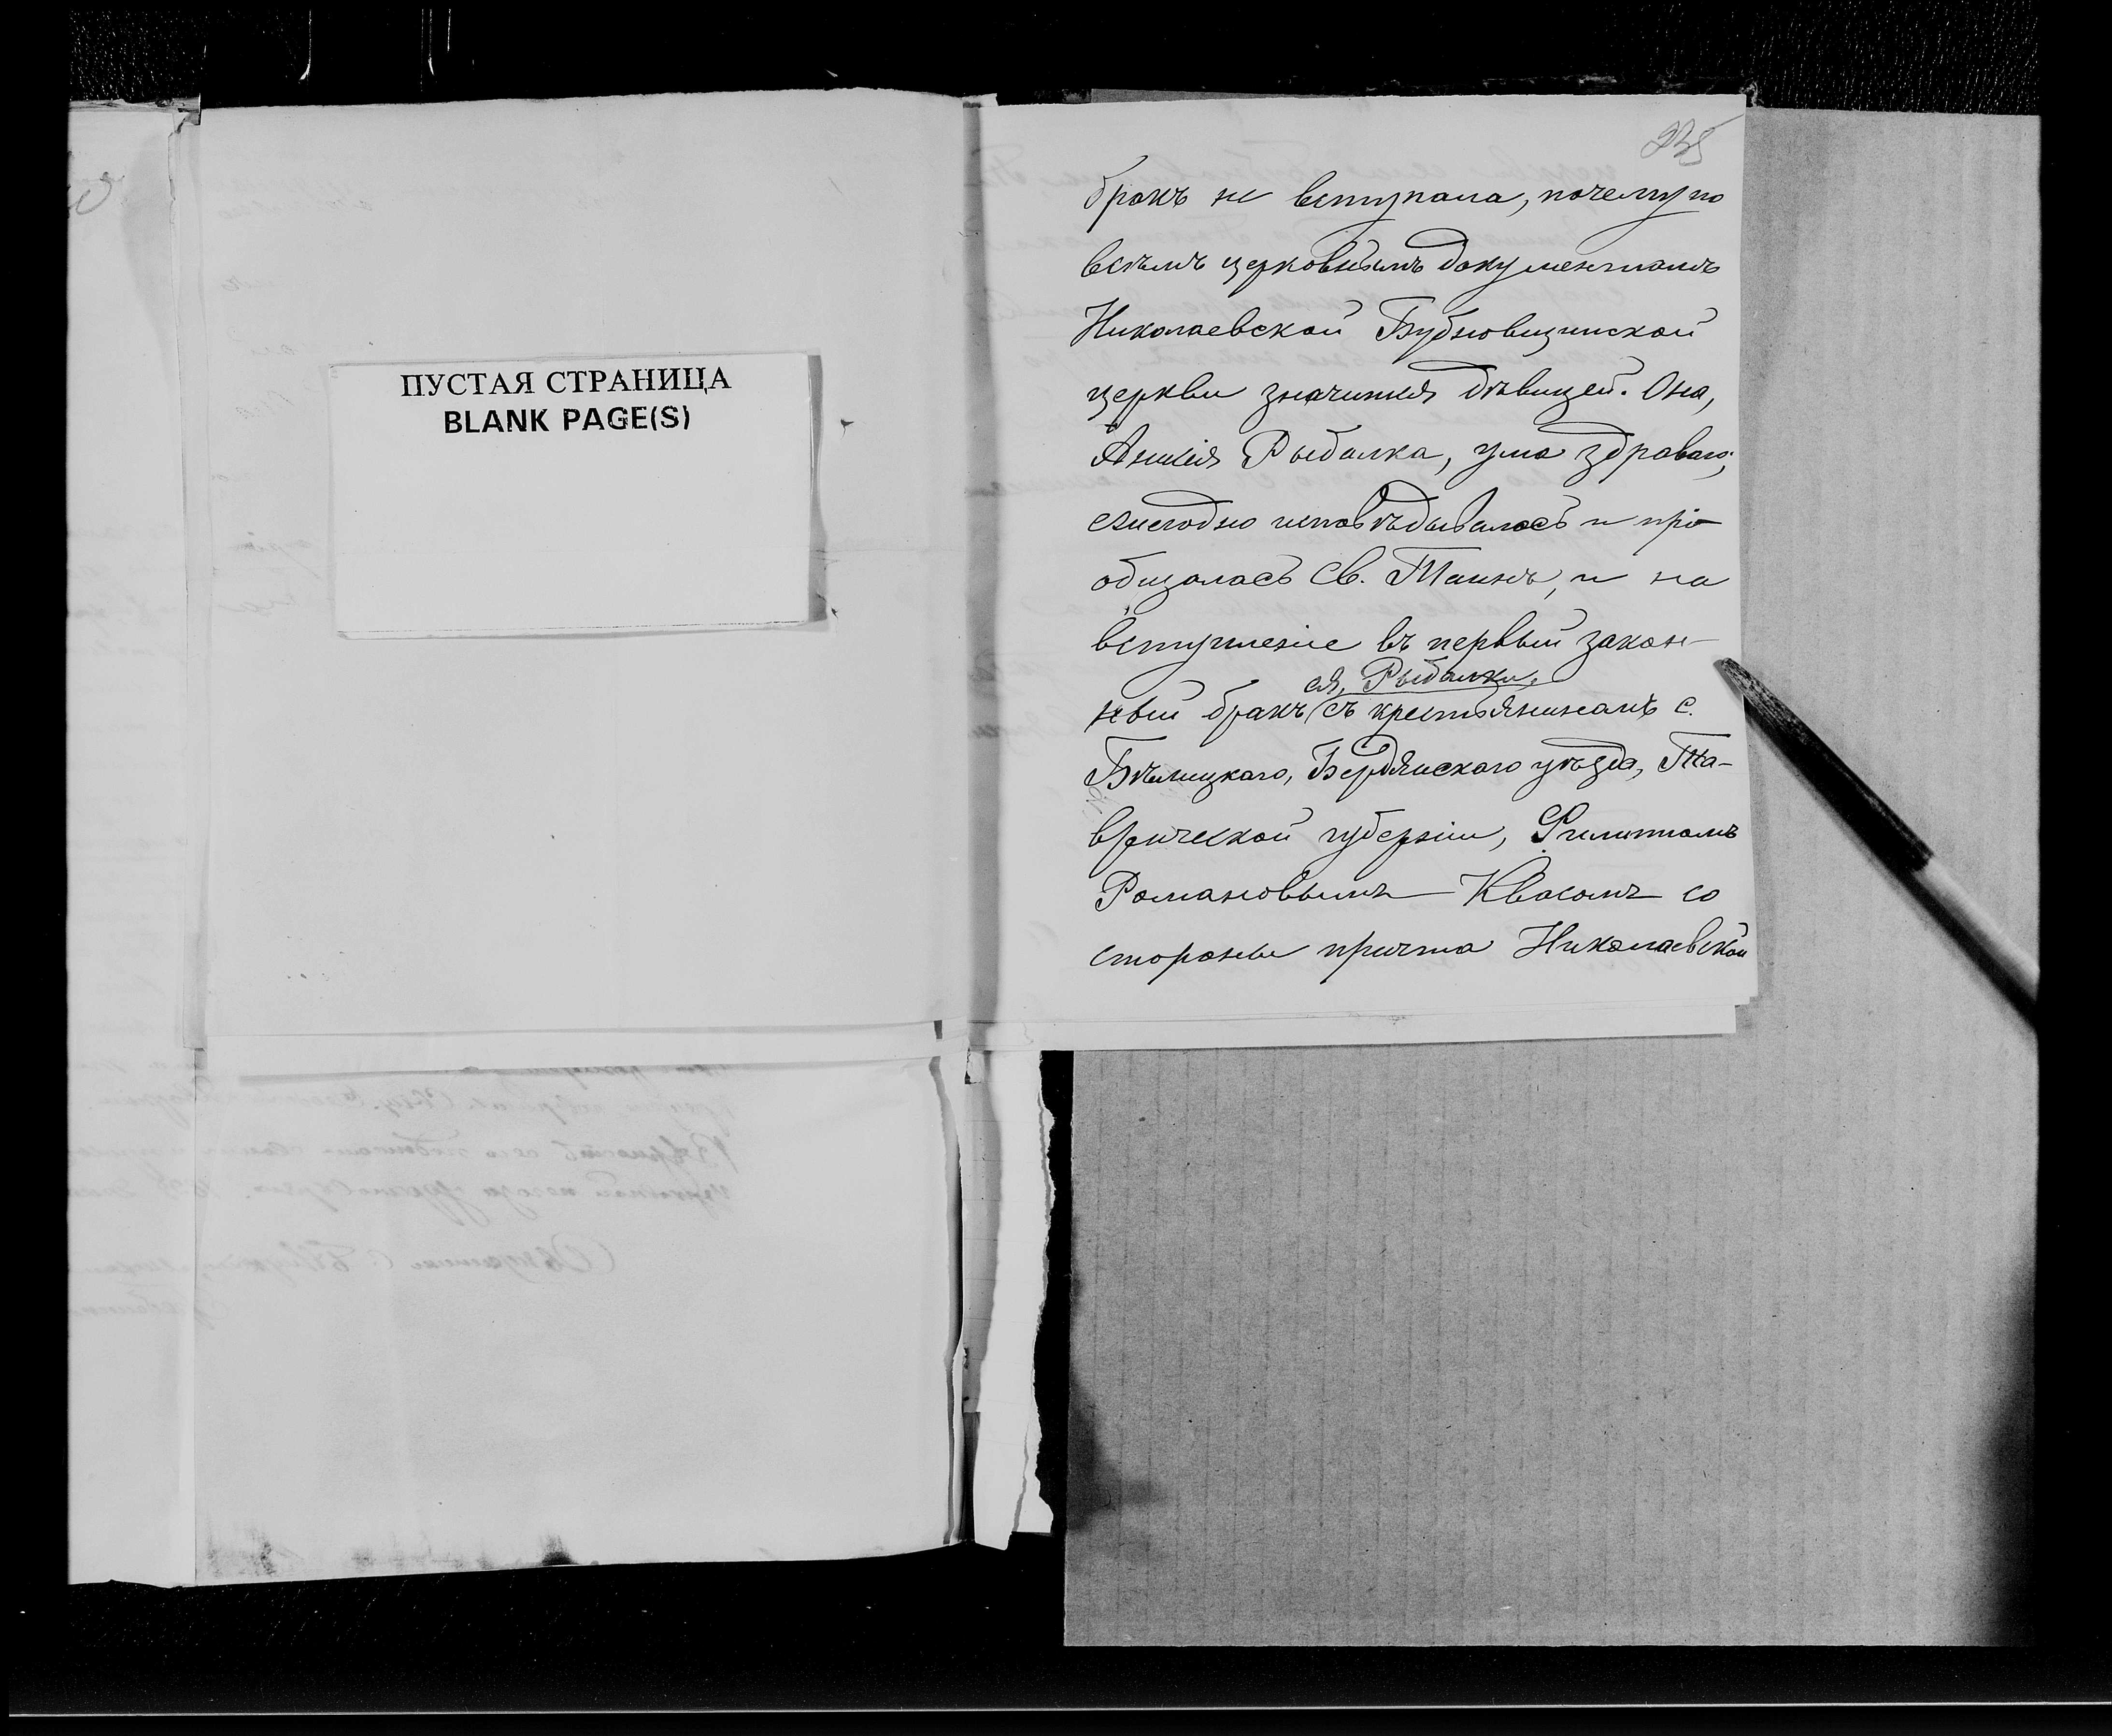 ПУСТАЯ СТРАНИЦА
BLANK PAGE(S)
235
бракъ не вступала, почему по
всѣмъ церковнымъ документамъ
Николаевской Бубновщинской
церкви значится дѣвицей. Она,
Рыбалка, ума здраваго,
ежегодно исповѣдывалась и прі-
общалась Св. Таинъ, и на
вступленіе въ первый закон-
ея, Рыбалки,
ный бракъ съ крестьяниномъ с.
Бѣлицкаго, Бердянскаго уѣзда, Та-
врической губерніи, Филиппомъ
Романовымъ Квасомъ со
стороны причта Николаевской